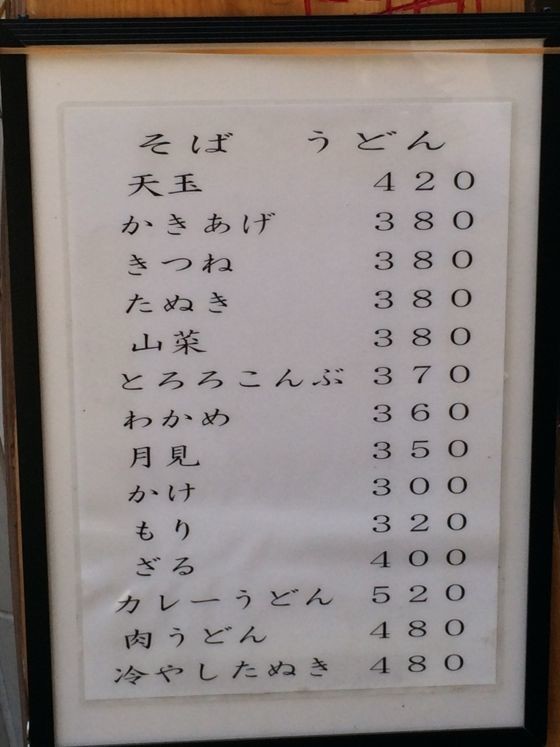 そば うどん
天玉 420
かきあげ 380
きつね 380
たぬき 380
山菜 380
とろろこんぶ 370
わかめ 360
月見 350
かけ 300
もり 320
ざる 400
カレーうどん 520
肉うどん 480
冷やしたぬき 480